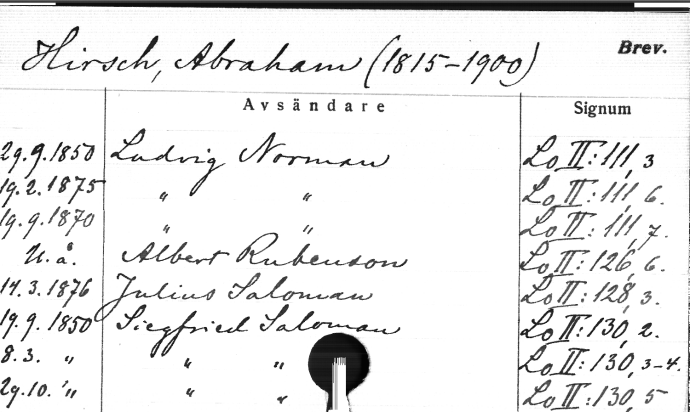 Hirsch, Abraham (1815-1900) Brev.
Avsändare Signum
29.9.1850 Ludvig Norman Lo II:111, 3
19.2.1875 " " Lo II:111, 6.
19.9.1870 " " Lo II:111, 7.
U.å. Albert Rubenson Lo II:126, 6.
17.3.1876 Julius Saloman Lo II:128, 3.
19.9.1850 Siegfried Saloman Lo II:130, 2.
8.3. " " " Lo II:130, 3-4.
29.10. " " " Lo II:130, 5